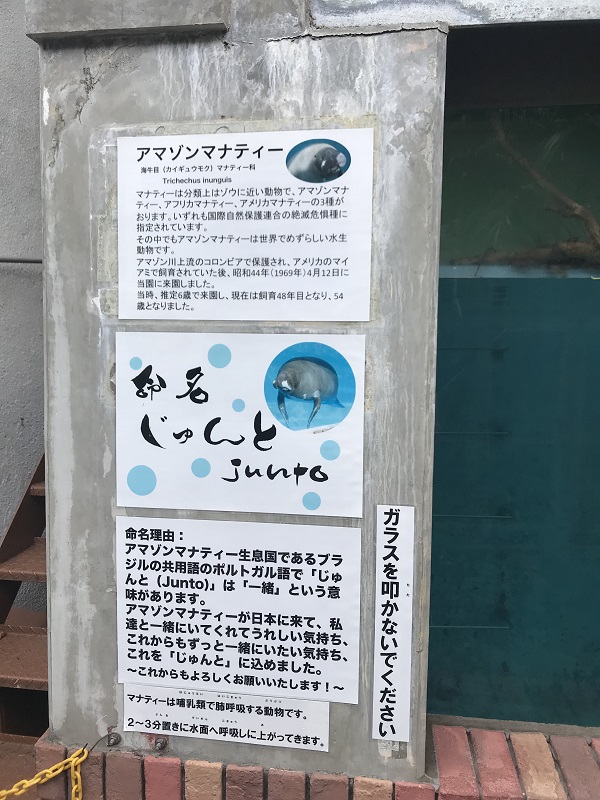 アマゾンマナティー
海牛目（カイギュウモク）マナティー科
Trichechus inunguis
マナティーは分類上はゾウに近い動物で、アマゾンマナ
ティー、アフリカマナティー、アメリカマナティーの3種が
おります。いずれも国際自然保護連合の絶滅危惧種に
指定されています。
その中でもアマゾンマナティーは世界でめずらしい水生
動物です。
アマゾン川上流のコロンビアで保護され、アメリカのマイ
アミで飼育されていた後、昭和44年（1969年）4月12日に
当園に来園しました。
当時、推定6歳で来園し、現在は飼育48年目となり、54
歳となりました。
命名
じゅんと
junto
命名理由：
アマゾンマナティー生息国であるブラ
ジルの共用語のポルトガル語で「じゅ
んと（Junto)」は「一緒」という意
味があります。
アマゾンマナティーが日本に来て、私
達と一緒にいてくれてうれしい気持ち、
これからもずっと一緒にいたい気持ち、
これを「じゅんと」に込めました。
～これからもよろしくお願いいたします！～
マナティーは哺乳類で肺呼吸する動物です。
2～3分置きに水面へ呼吸しに上がってきます。
ガラスを叩かないでください